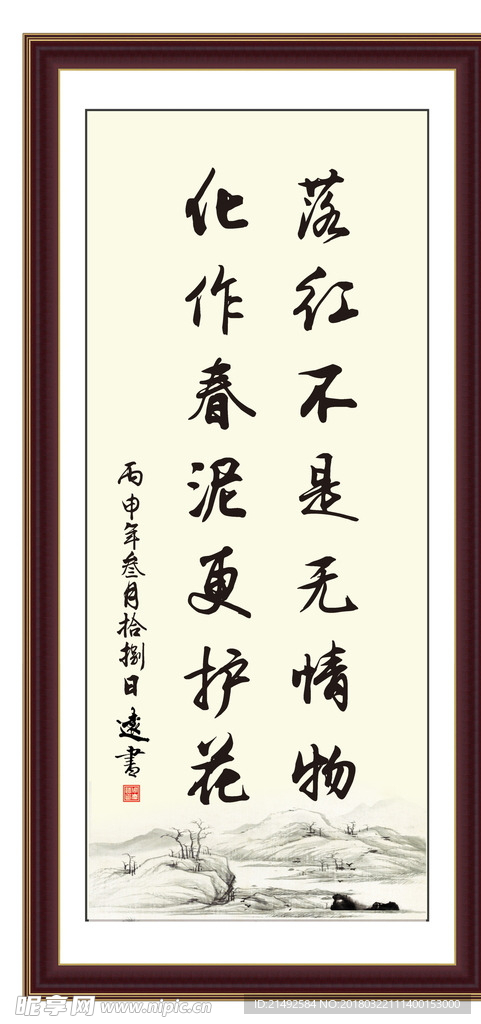 落红不是无情物
化作春泥更护花
丙申年叁月拾捌日
远书
昵享网 www.nipic.cn
ID:21492584 NO:20180322111400153000